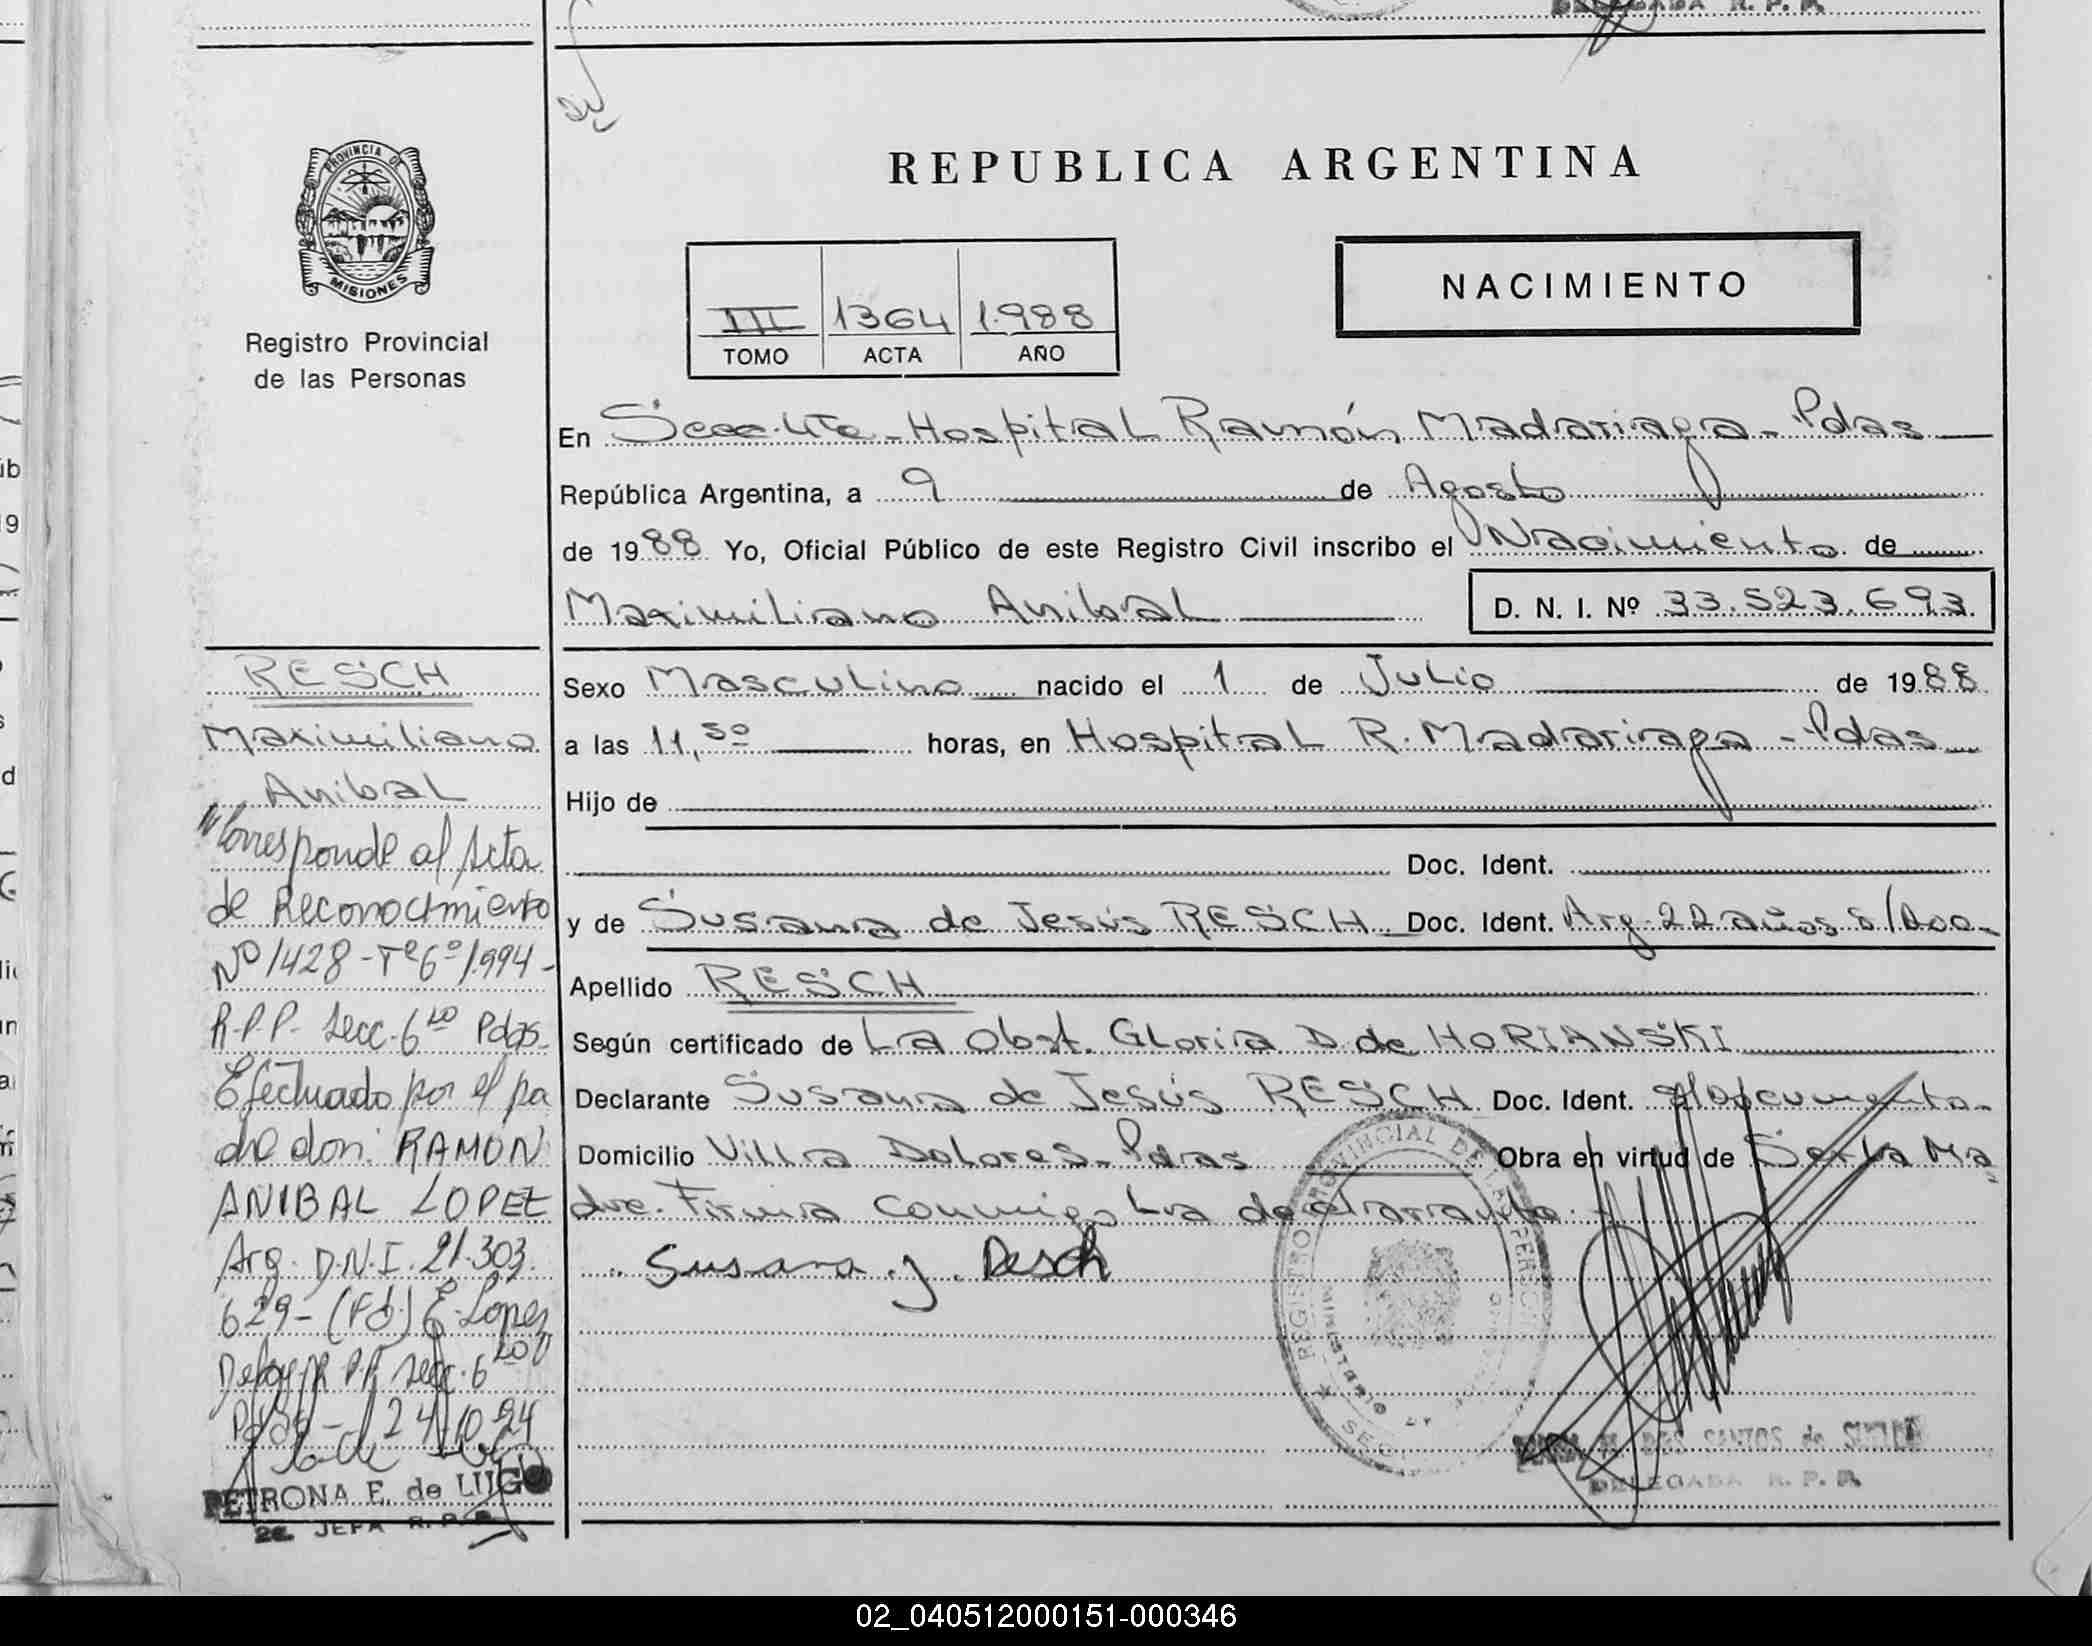 DELEGADA R. P. P.
REPUBLICA ARGENTINA
NACIMIENTO
PROVINCIA DE
MISIONES
Registro Provincial
de las Personas
III 1364 1.988
TOMO ACTA AÑO
En Secc. 4ta - Hospital Ramón Madariaga - Pdas
República Argentina, a 9 de Agosto
de 1988 Yo, Oficial Público de este Registro Civil inscribo el Nacimiento de
Maximiliano Anibal D. N. I. Nº 33.523.693
Sexo Masculino nacido el 1 de Julio de 1988
a las 11,50 horas, en Hospital R. Madariaga - Pdas
Hijo de
Doc. Ident.
y de Susana de Jesús RESCH Doc. Ident. Arg. 22 años s/Doc.
Apellido RESCH
Según certificado de La Obst. Gloria D. de HORIANSKI
Declarante Susana de Jesús RESCH Doc. Ident. s/Documento.
Domicilio Villa Dolores - Pdas Obra en virtud de Ser la Ma
dre. Firma conmigo la declarante.
Susana J. Resch
REGISTRO PROVINCIAL DE LAS PERSONAS
MINISTERIO
SECC
DOS SANTOS de
DELEGADA R. P. P.
RESCH
Maximiliano
Anibal
"Corresponde al Acta
de Reconocimiento
Nº 1428 - Tº 6º/1.994 -
R.P.P. Secc. 6ta Pdas.
Efectuado por el pa
dre don: RAMON
ANIBAL LOPEZ
Arg. D.N.I. 21.303.
629 - (Fd) E. Lopez
Deleg. R.P.P. Secc. 6ta
Pdas - 24 10 94
PETRONA E. de LUGO
2a. JEFA R. P. P.
02_040512000151-000346